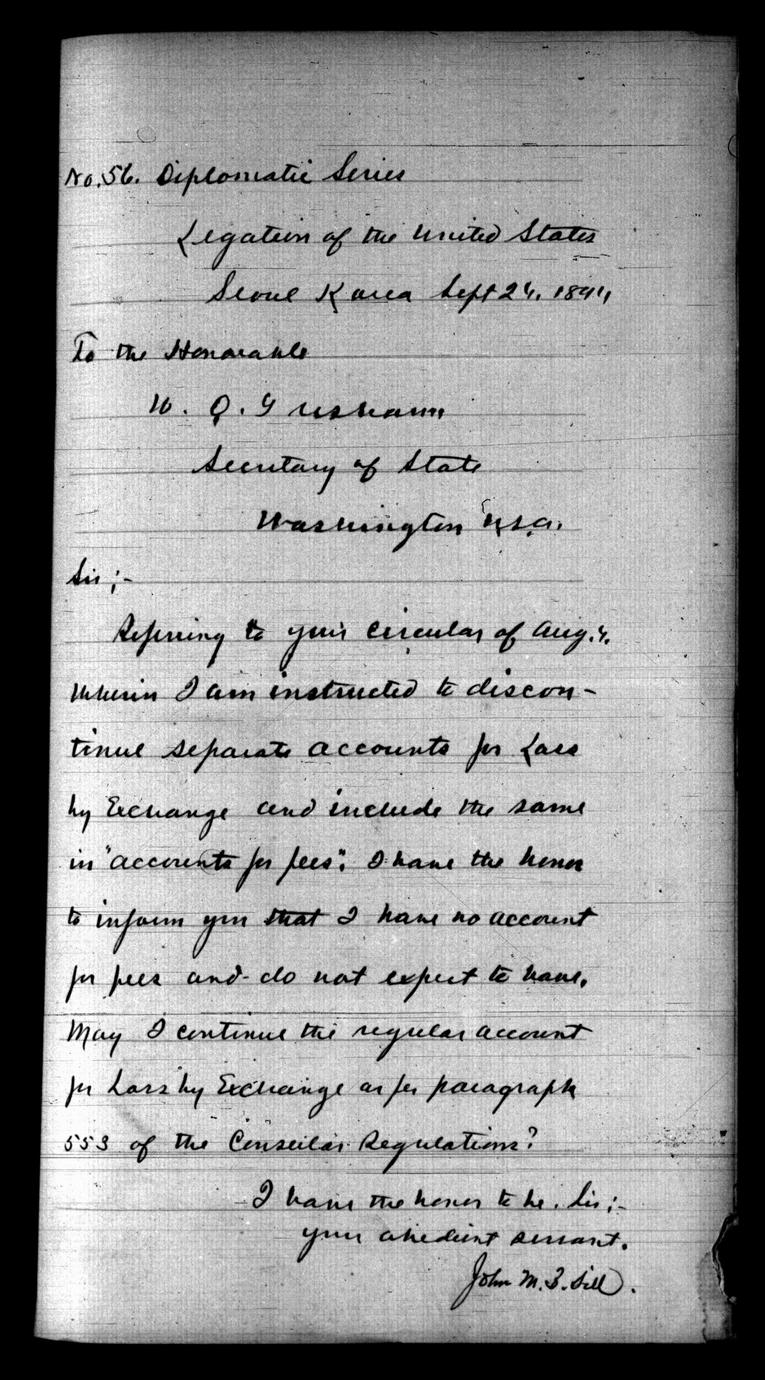 No. 56. Diplomatic Series
Legation of the United States
Seoul Korea Sept 24, 1894
To the Honorable
W. Q. Gresham
Secretary of State
Washington U.S.A.
Sir;-
Referring to your circular of Aug. 4.
wherein I am instructed to discon-
tinue separate accounts for Loss
by Exchange and include the same
in "accounts for fees". I have the honor
to inform you that I have no account
for fees and do not expect to have.
May I continue the regular account
for Loss by Exchange as per paragraph
553 of the Consular Regulations?
I have the honor to be, Sir;-
your obedient servant.
John M. B. Sill.